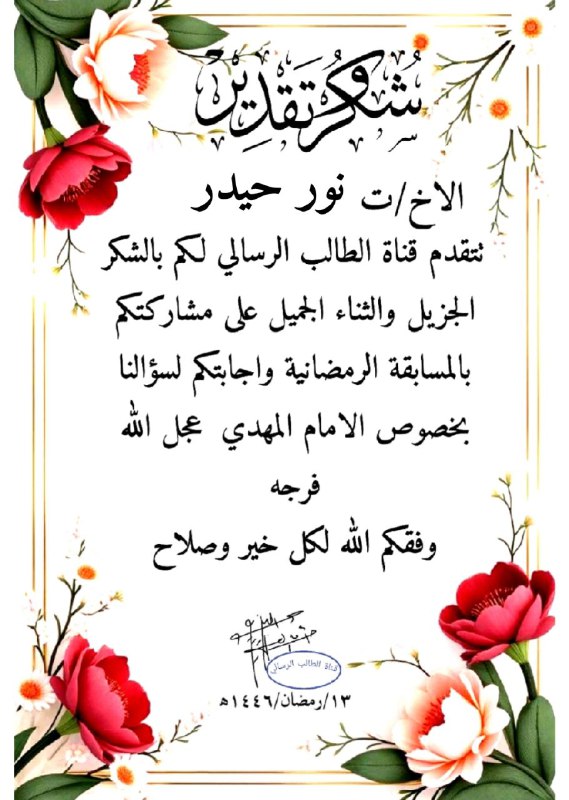 شكر وتقدير
الاخ/ت نور حيدر
تتقدم قناة الطالب الرسالي لكم بالشكر
الجزيل والثناء الجميل على مشاركتكم
بالمسابقة الرمضانية واجابتكم لسؤالنا
بخصوص الامام المهدي عجل الله
فرجه
وفقكم الله لكل خير وصلاح
قناة الطالب الرسالي
١٣/رمضان/١٤٤٦ه